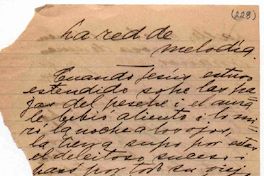 (228)
La red de
melodía.
Cuando Jesús estuvo
estendido sobre las pa
jas del pesebre i el aura
le bebió aliento i lo mi
ró, la noche a los ojos,
la tierra supo por esta
el deleitoso suceso i
pasó por todo su